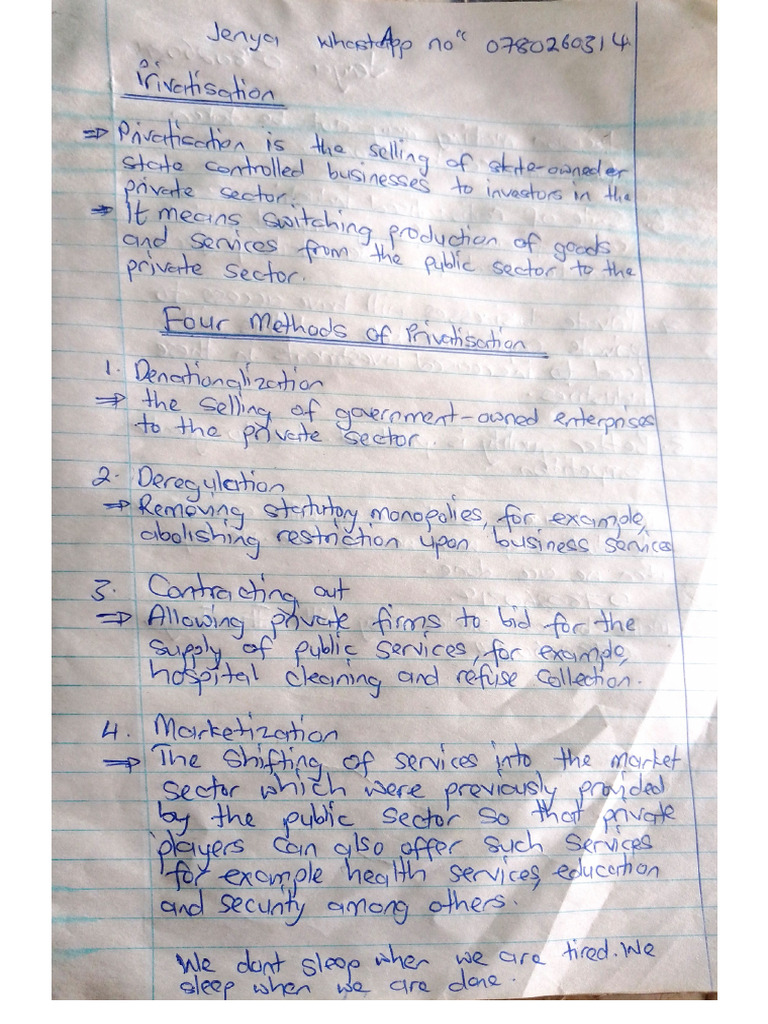 Jenya WhastApp no" 0780260314
Privatisation
⇒ Privatisation is the selling of state-owned or
state controlled businesses to investors in the
private sector.
⇒ It means switching production of goods
and services from the public sector to the
private sector.
Four Methods of Privatisation
1. Denationalization
⇒ the selling of government-owned enterprises
to the private sector.
2. Deregulation
⇒ Removing statutory monopolies, for example,
abolishing restriction upon business services
3. Contracting out
⇒ Allowing private firms to bid for the
supply of public services, for example,
hospital cleaning and refuse collection.
4. Marketization
⇒ The shifting of services into the market
sector which were previously provided
by the public sector so that private
players can also offer such services
for example health services, education
and security among others.
We dont sleep when we are tired. We
sleep when we are done.